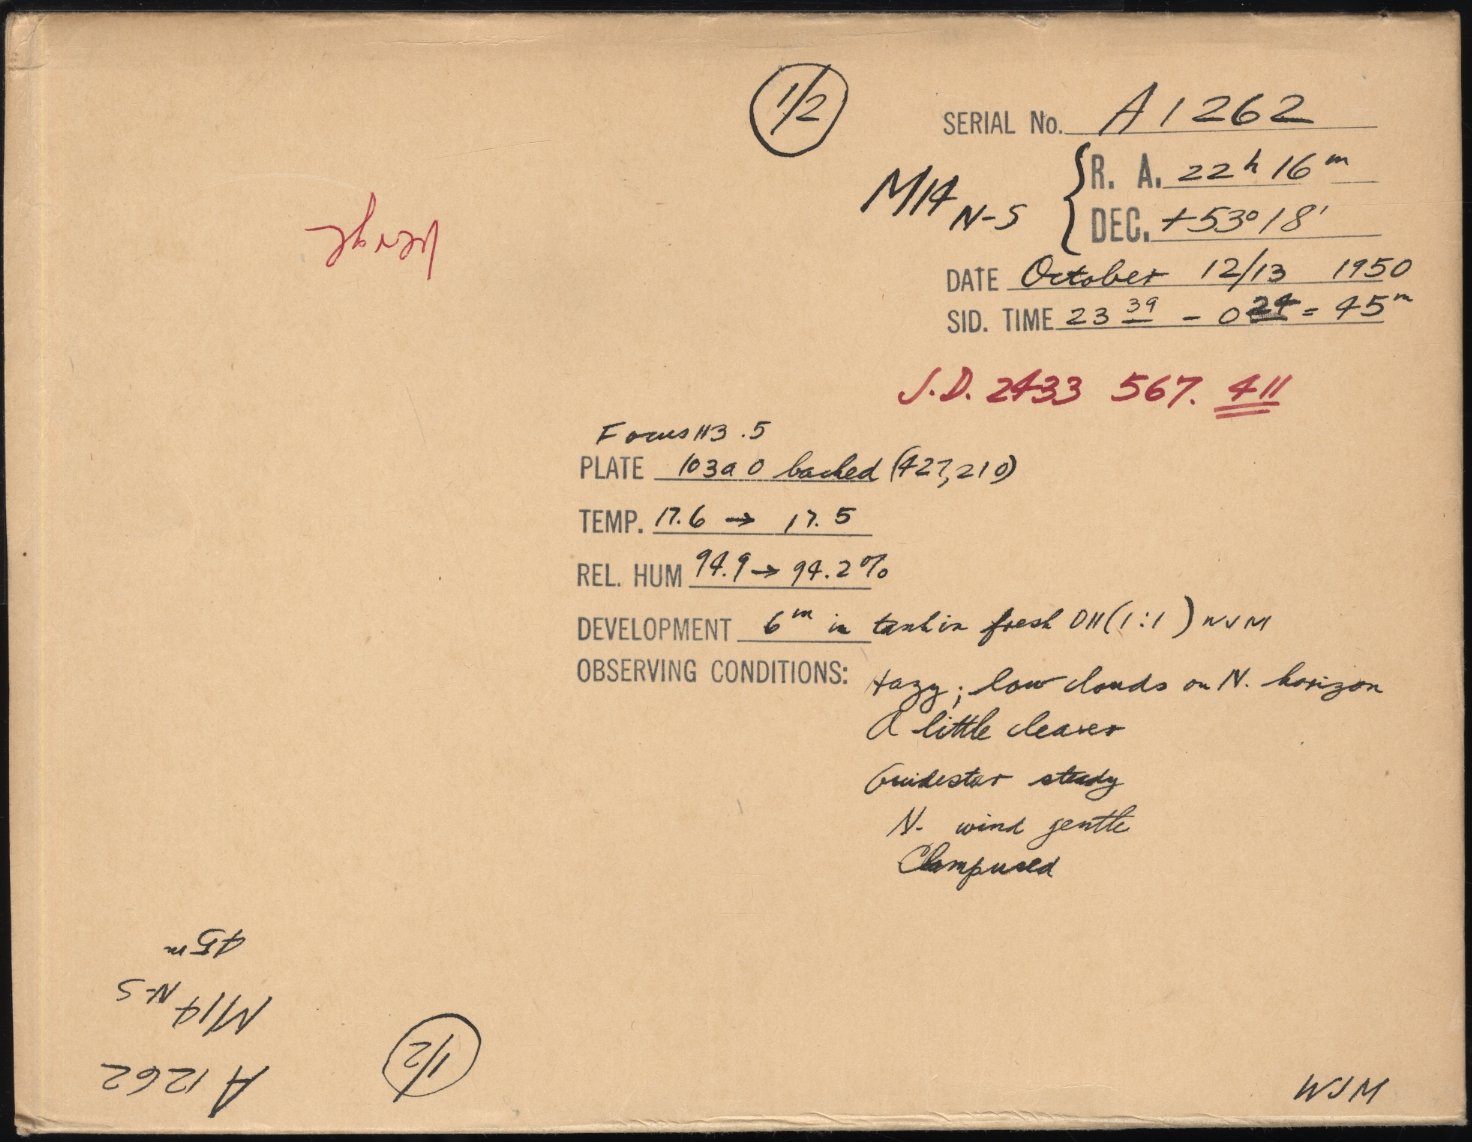 1/2
SERIAL No. A1262
M14 N-S { R. A. 22h 16m
DEC. +53° 18'
DATE October 12/13 1950
SID. TIME 23 39 - 0 24 = 45m
J.D. 2433 567. 411
Focus 113.5
PLATE 103a O backed (427,210)
TEMP. 17.6 → 17.5
REL. HUM 94.9 → 94.2%
DEVELOPMENT 6m in tank in fresh D11 (1:1) WJM
OBSERVING CONDITIONS: Hazy; low clouds on N. horizon
A little clearer
Guidestar steady
N. wind gentle
45m
M14 N-S
A1262
1/2
WJM